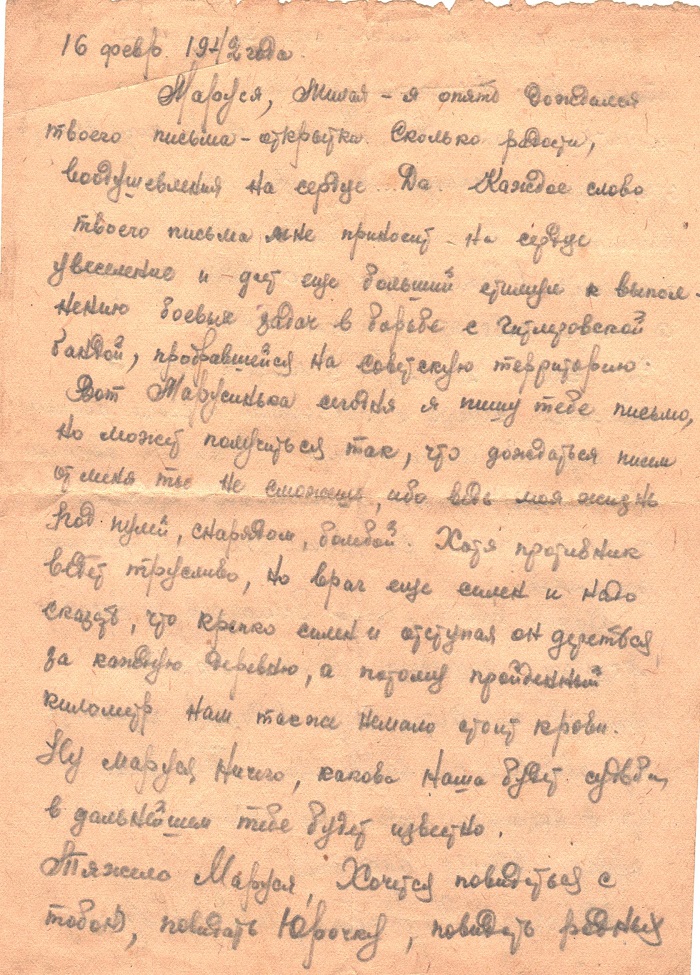 16 февр. 1942 года.
Маруся, милая - я опять дождался
твоего письма - открытки. Сколько радости,
воодушевления на сердце. Да. Каждое слово
твоего письма мне приносит на сердце
увеселение и дает еще больший стимул к выпол-
нению боевых задач в борьбе с гитлеровской
бандой, пробравшейся на советскую территорию.
Вот Марусинька сегодня я пишу тебе письмо,
но может получиться так, что дождаться писем
от меня ты не сможешь, ибо ведь моя жизнь
под пулей, снарядом, бомбой. Хотя противник
ведет трусливо, но враг еще силен и надо
сказать, что крепко силен и отступая он дереться
за каждую деревню, а потому пройденный
километр нам также немало стоит крови.
Ну Маруся ничего, какова наша будет судьба,
в дальнейшем тебе будет известно.
Тяжело Маруся, Хочется повидеться с
тобой, повидать Юрочку, повидать родных